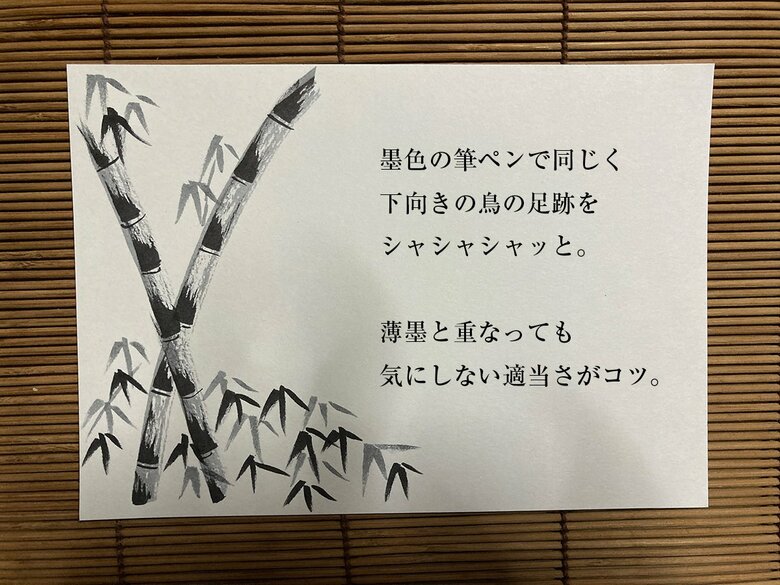 墨色の筆ペンで同じく
下向きの鳥の足跡を
シャシャシャッと。
薄墨と重なっても
気にしない適当さがコツ。